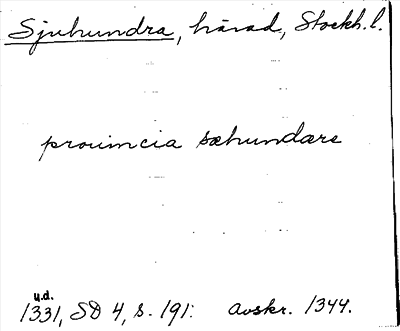 Sjuhundra, härad, Stockh. l.
prouincia sæhundære
u.d.
1331, SD 4, s. 191. avskr. 1344.